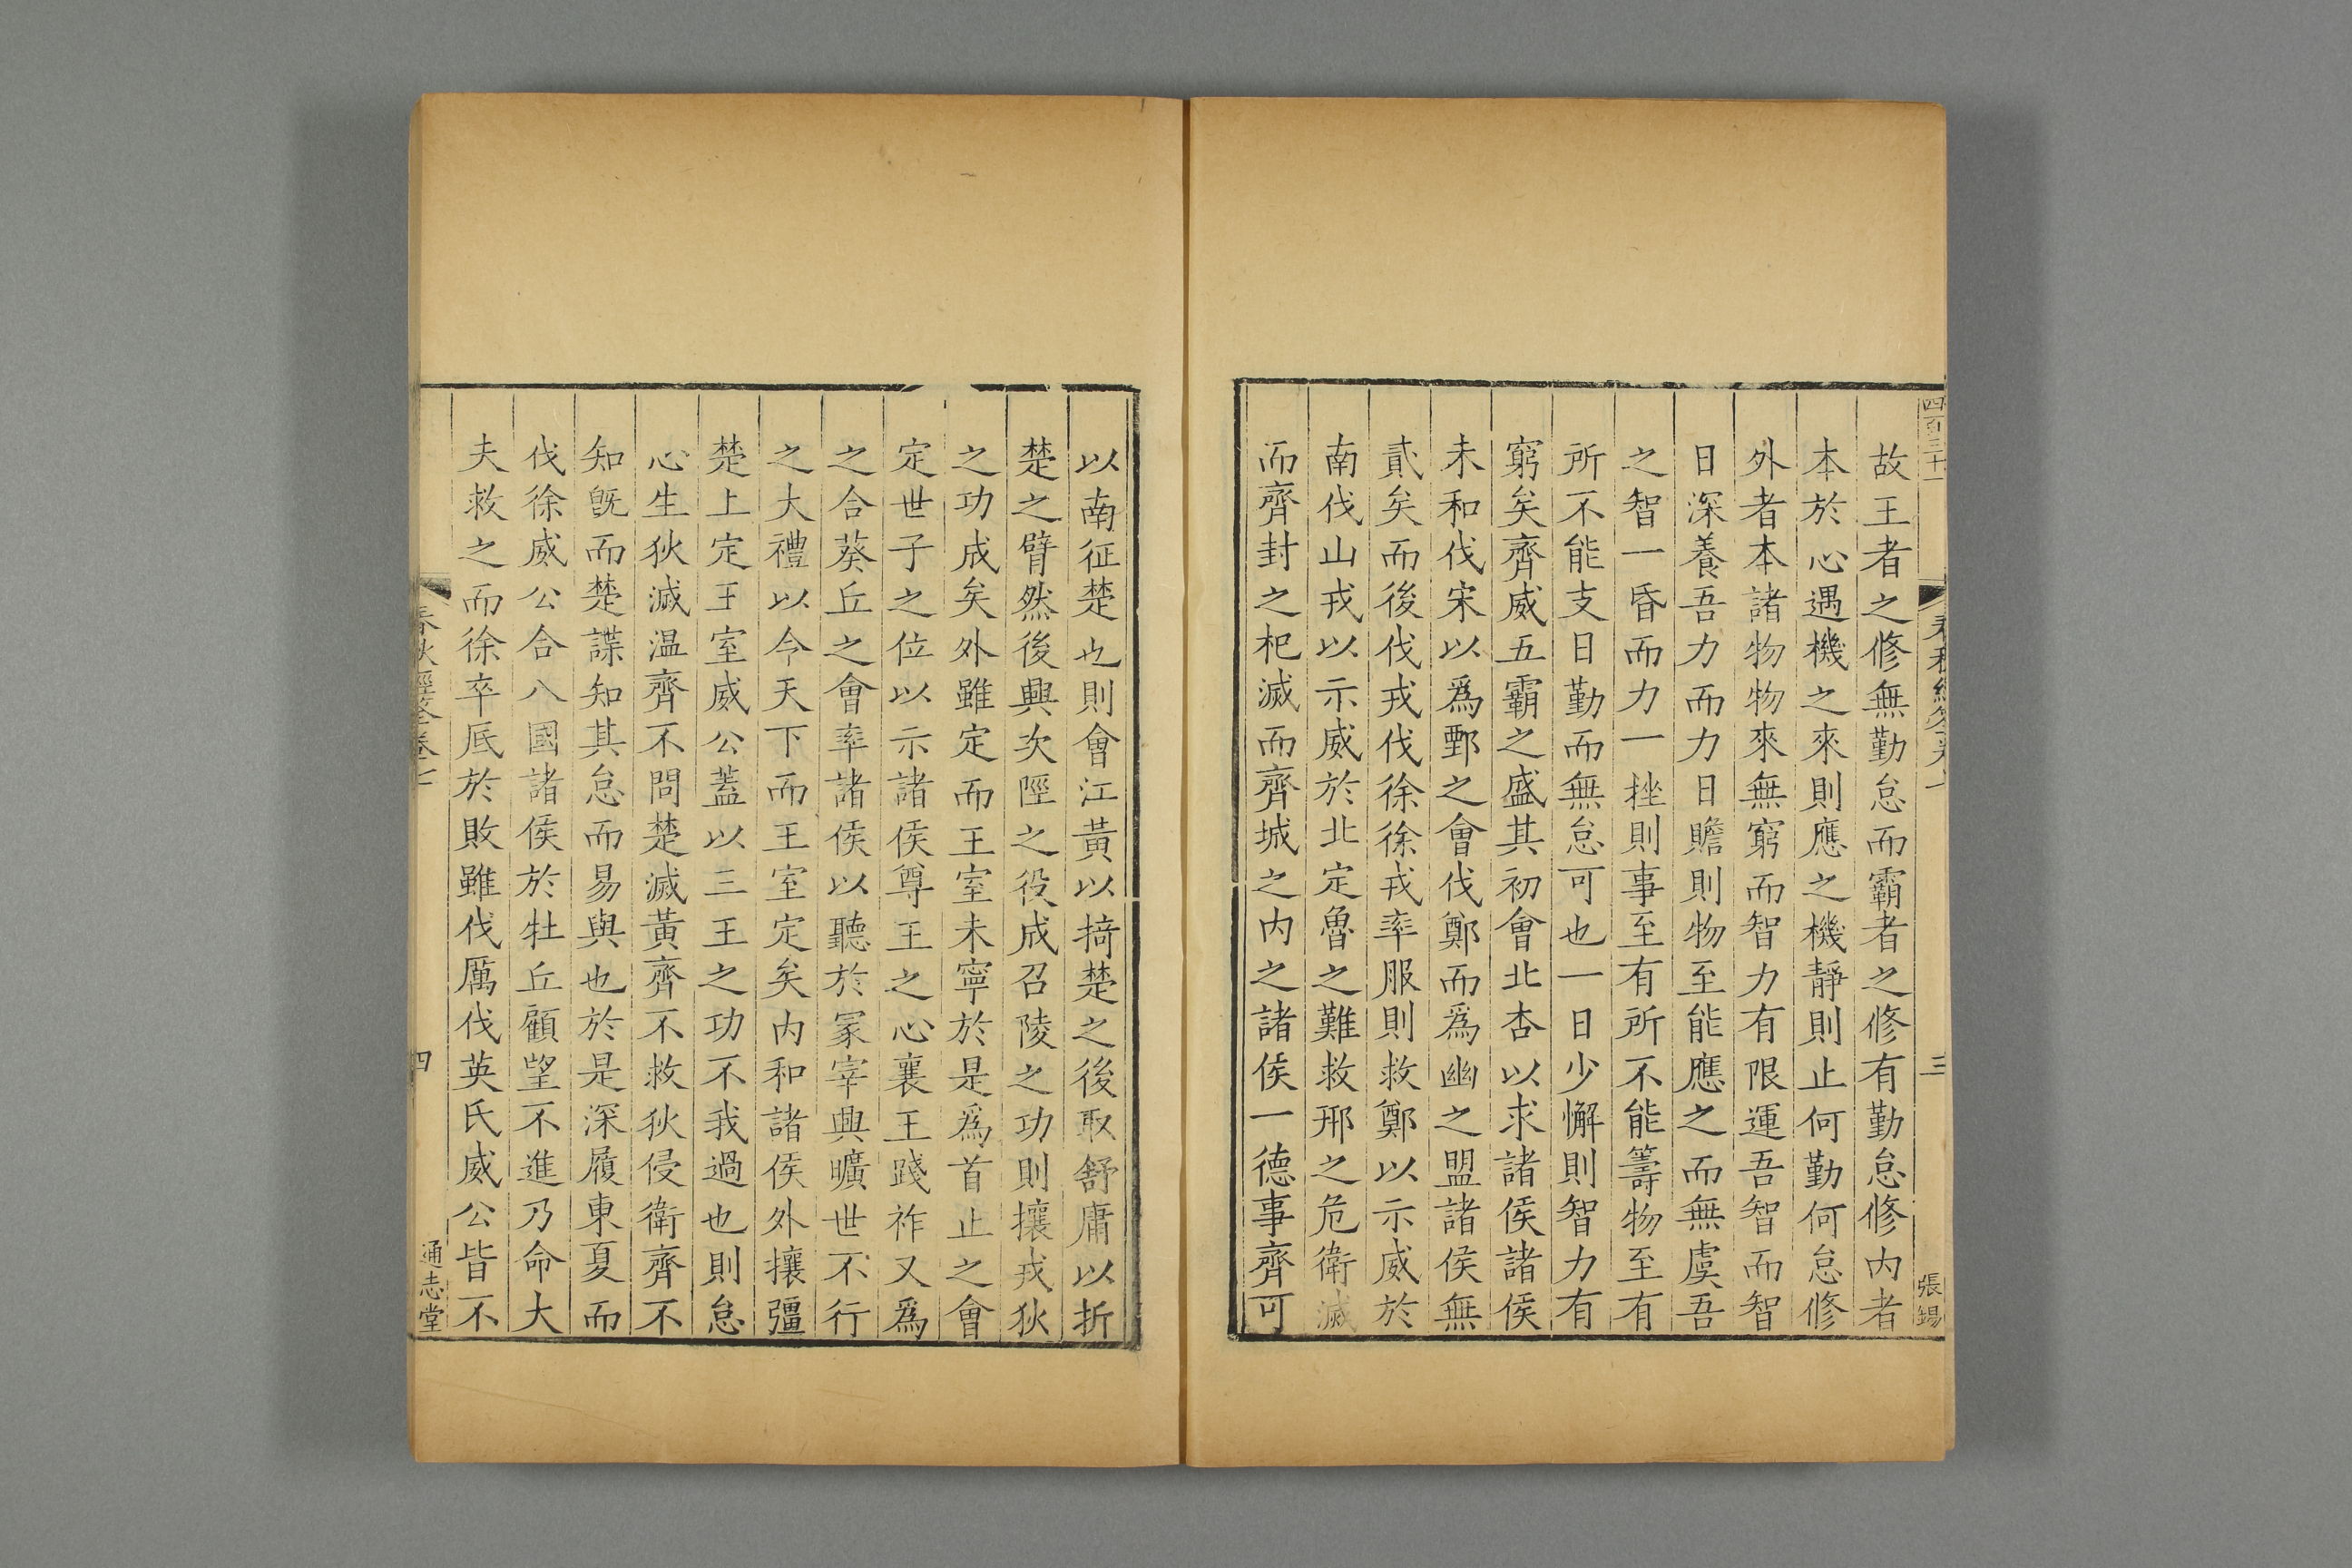 四百三十一
三
張錫
故王者之修無勤怠而霸者之修有勤怠修内者
本於心遇機之來則應之機靜則止何勤何怠修
外者本諸物物來無窮而智力有限運吾智而智
日深養吾力而力日贍則物至能應之而無虞吾
之智一昏而力一挫則事至有所不能籌物至有
所不能支日勤而無怠可也一日少懈則智力有
窮矣齊威五霸之盛其初會北杏以求諸侯諸侯
未和伐宋以爲鄄之會伐鄭而爲幽之盟諸侯無
貳矣而後伐戎伐徐徐戎率服則救鄭以示威於
南伐山戎以示威於北定魯之難救邢之危衛滅
而齊封之杞滅而齊城之内之諸侯一德事齊可
以南征楚也則會江黃以掎楚之後取舒庸以折
楚之臂然後興次陘之役成召陵之功則攘戎狄
之功成矣外雖定而王室未寧於是爲首止之會
定世子之位以示諸侯尊王之心襄王踐祚又爲
之合葵丘之會率諸侯以聽於冢宰興曠世不行
之大禮以令天下而王室定矣内和諸侯外攘彊
楚上定王室威公蓋以三王之功不我過也則怠
心生狄滅温齊不問楚滅黃齊不救狄侵衛齊不
知旣而楚諜知其怠而易與也於是深履東夏而
伐徐威公合八國諸侯於牡丘顧望不進乃命大
夫救之而徐卒厎於敗雖伐厲伐英氏威公皆不
春秋經筌卷七
四
通志堂